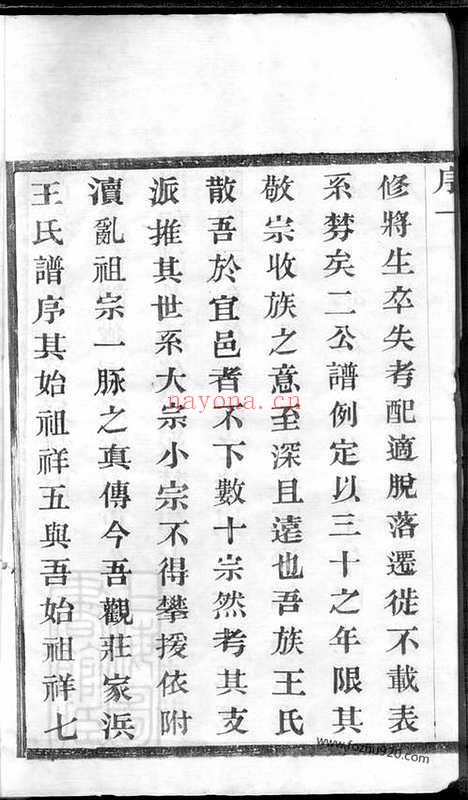 序一
修將生卒失考配適脫落遷徙不載表
系棼矣二公譜例定以三十之年限其
敬宗收族之意至深且遠也吾族王氏
散吾於宜邑者不下數十宗然考其支
派推其世系大宗小宗不得攀援依附
瀆亂祖宗一脉之真傳今吾觀莊家浜
王氏譜序其始祖祥五與吾始祖祥七
nayona.cn
www.fozhu920.com